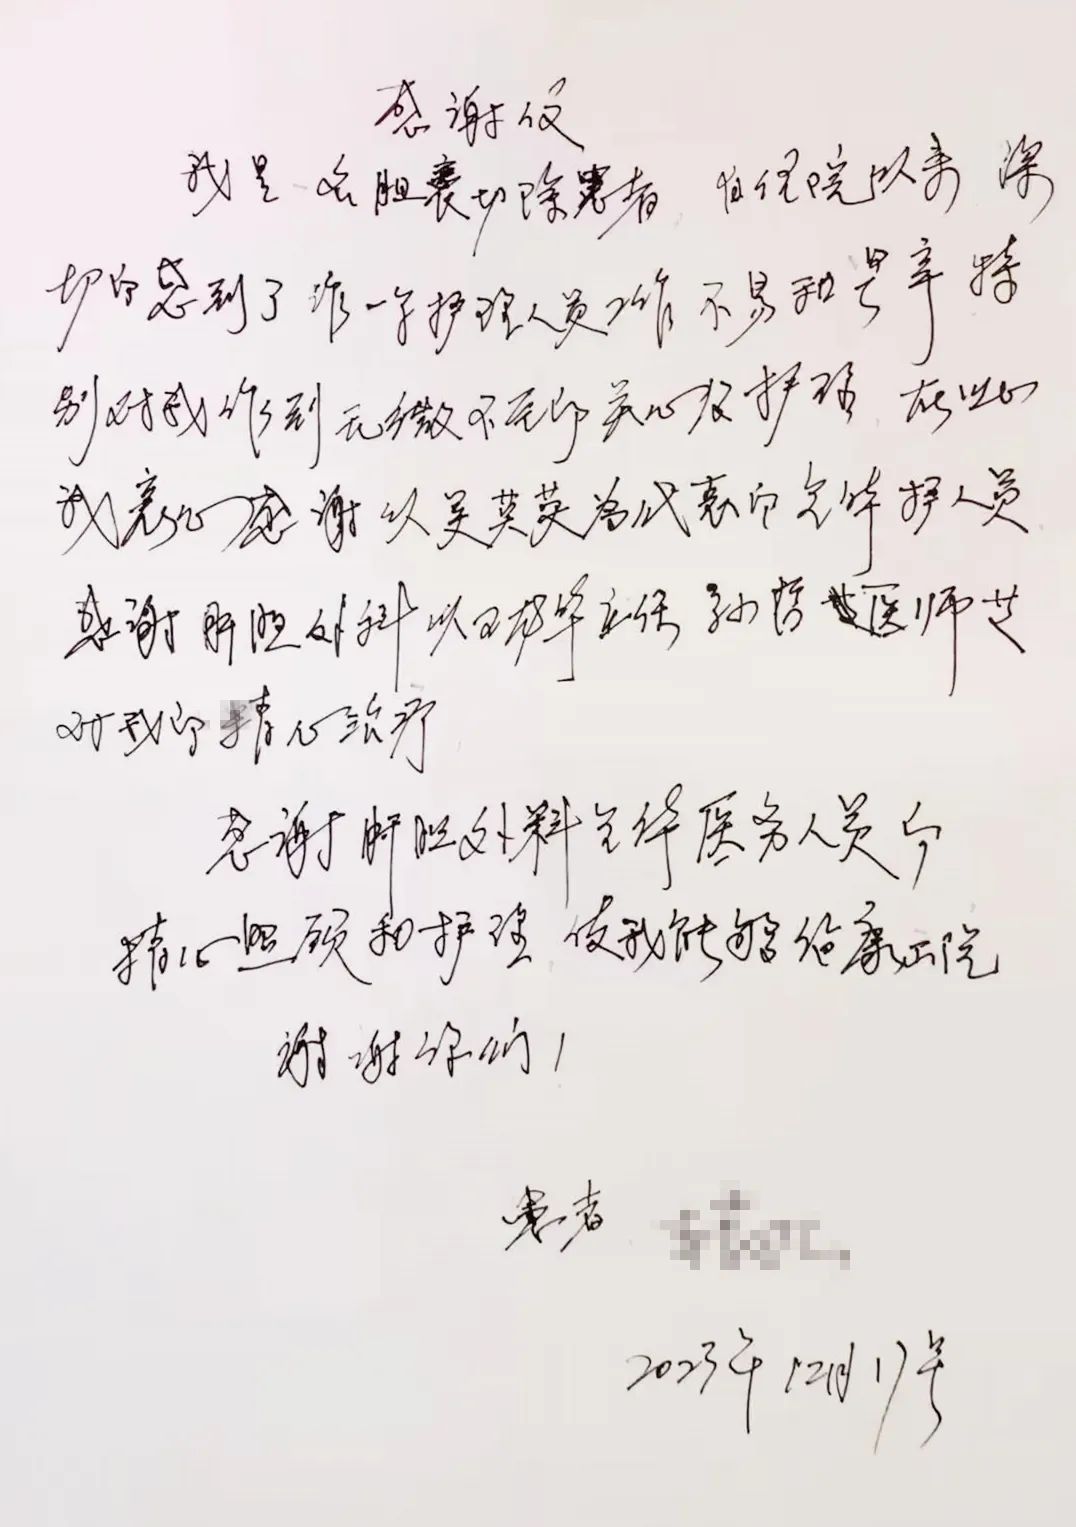 感谢信
我是一名胆囊切除患者 自住院以来 深
切的感到了作一名护理人员工作不易和艰辛 特
别对我作到无微不至的关心及护理 在此
我衷心感谢以吴英英为代表的全体护人员
感谢肝胆外科以 主任 孙哲 医师
对我的精心治疗
感谢肝胆外科全体医务人员的
精心照顾和护理 使我能够 康出院
谢谢你们！
患者
2023年12月17号